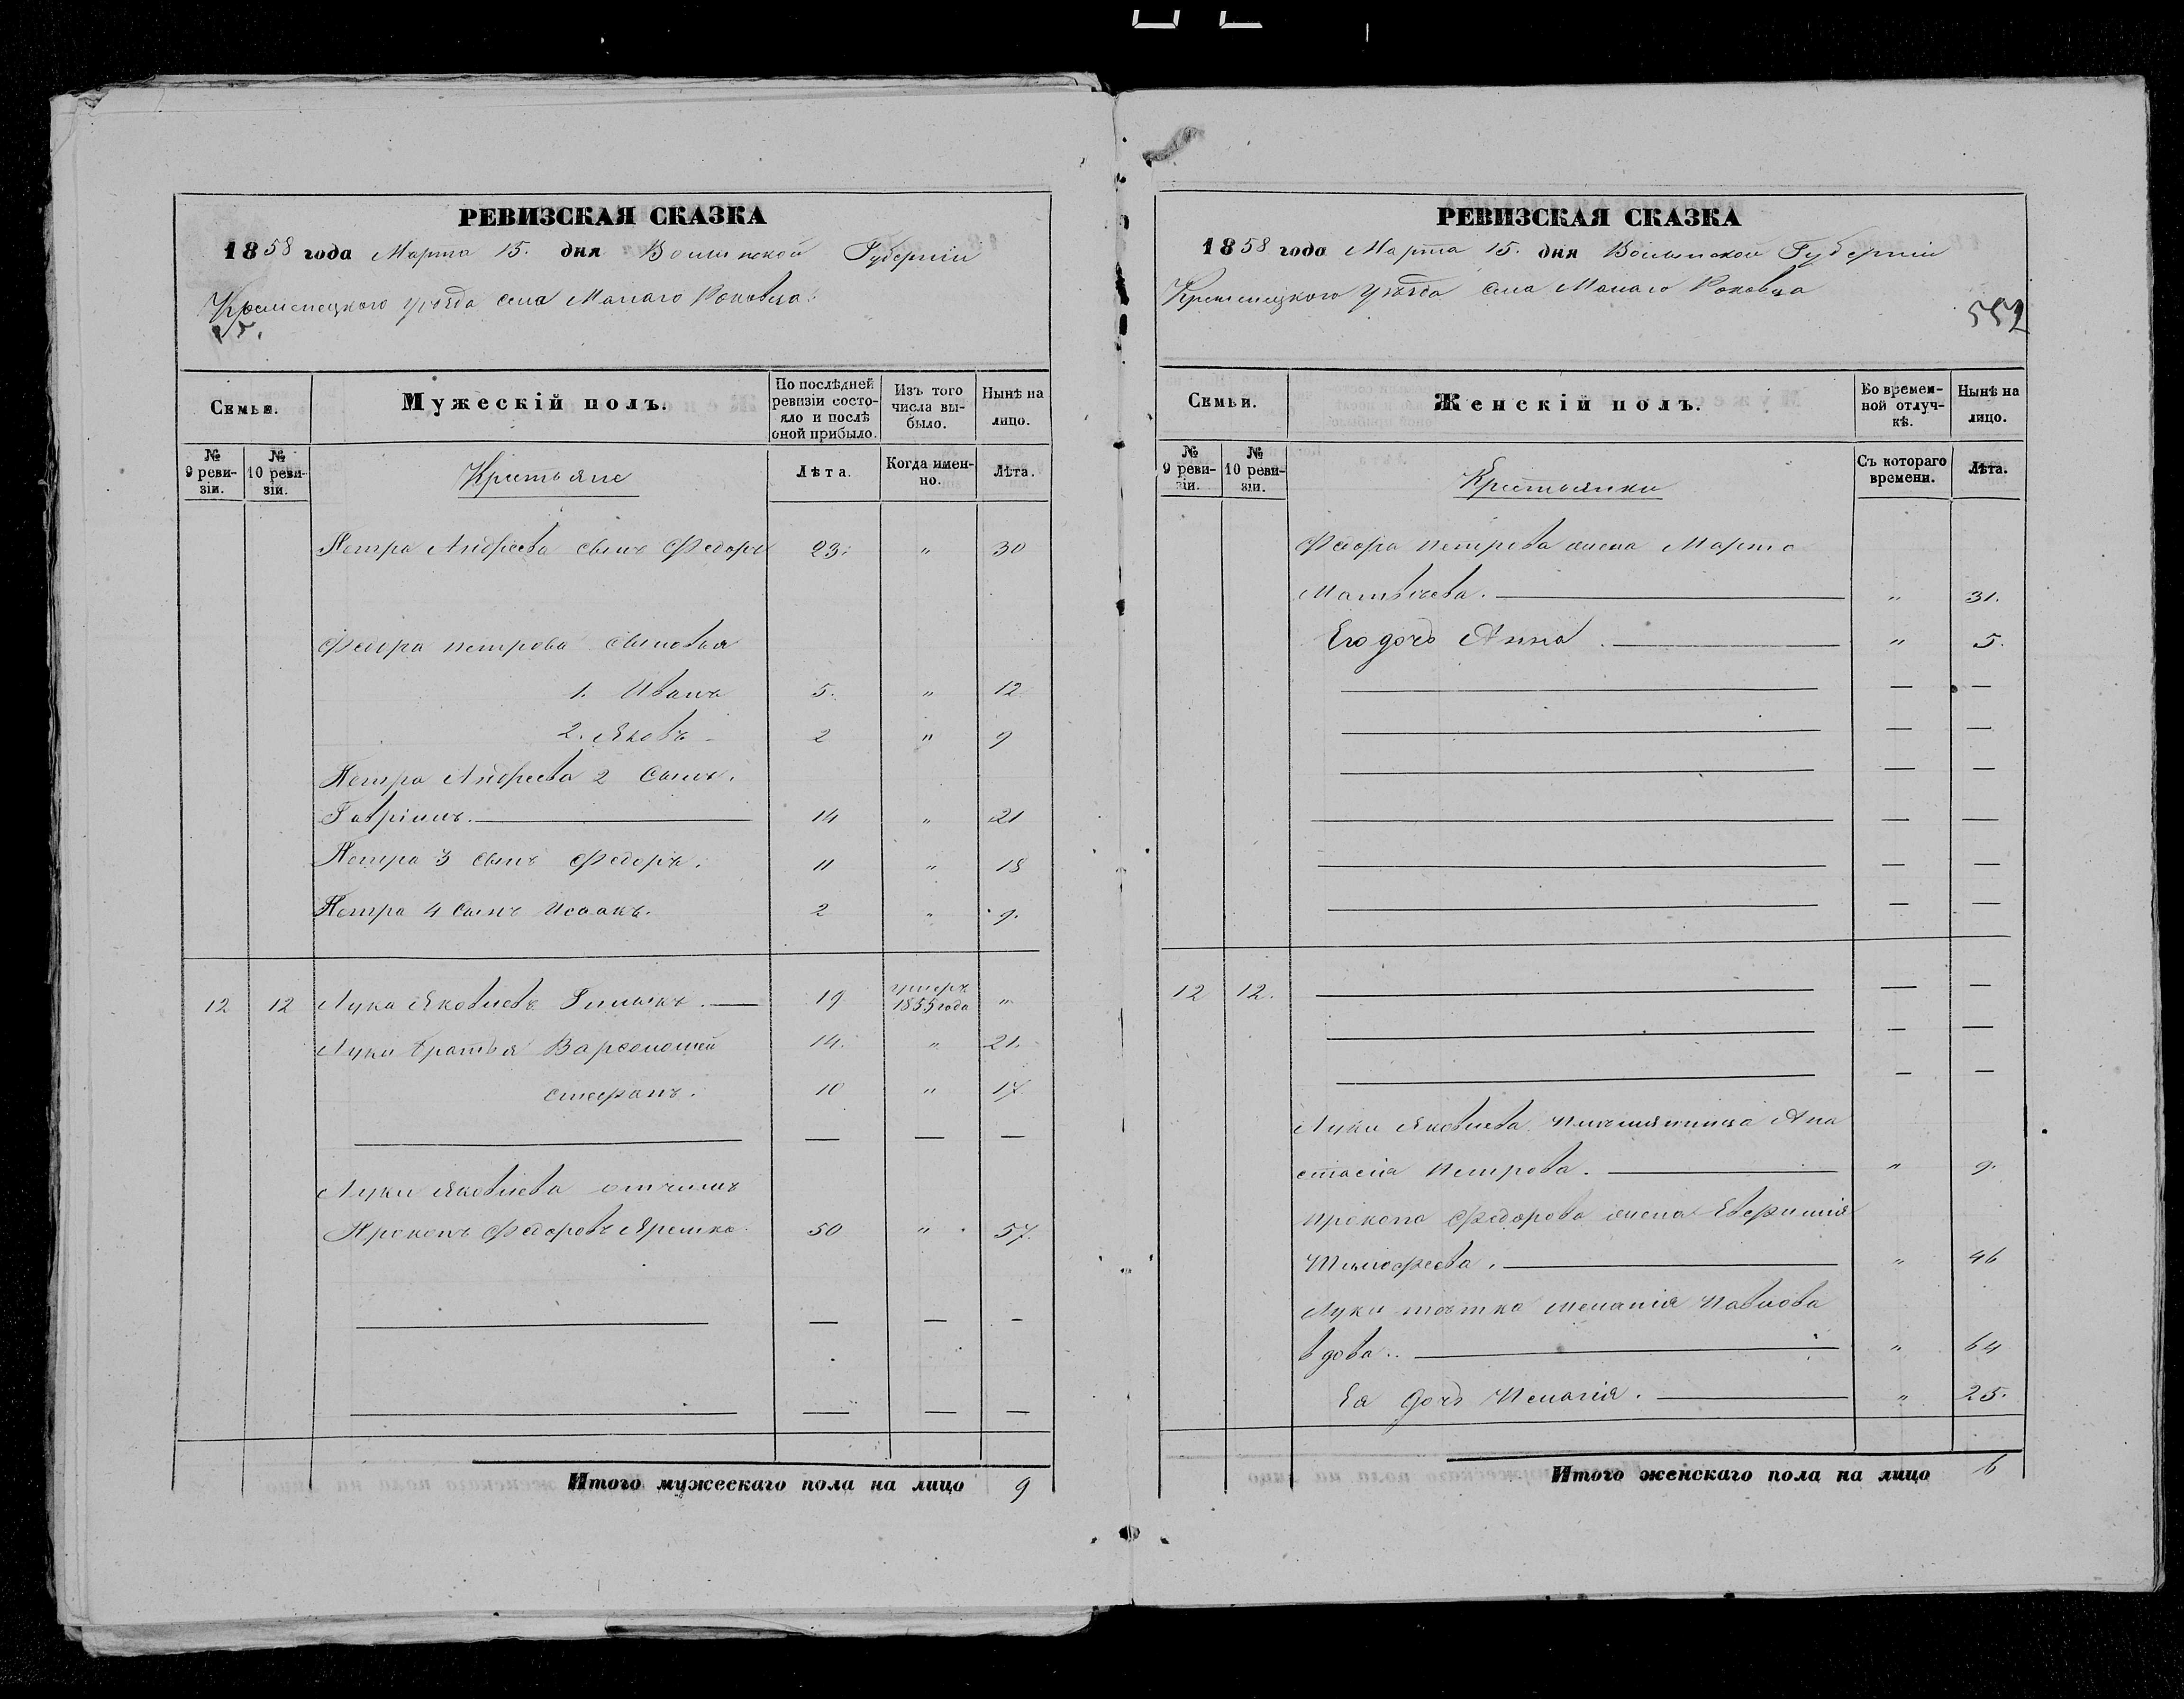 РЕВИЗСКАЯ СКАЗКА
1858 года Марта 15. дня Волынской Губерніи
Кременецкого уѣзда села Малаго Раковца
Семьи.
Мужескій полъ.
По послѣдней ревизіи состояло и послѣ оной прибыло.
Изъ того числа выбыло.
Нынѣ на лицо.
№ 9 ревизіи.
№ 10 ревизіи.
Крестьяне
Лѣта.
Когда именно.
Лѣта.
Петра Андреева сынъ Федоръ 23. " 30
Федора петрова сыновья
1. Иванъ 5. " 12
2. Яковъ 2 " 9
Петра Андреева 2 сынъ.
Гавріилъ. 14 " 21
Петра 3 сынъ Федоръ. 11 " 18
Петра 4 сынъ Исаакъ. 2 " 9.
12 12 Лука Яковлевъ 19 умеръ 1855 года "
Луки братья Варсонофій 14. " 21.
Стефанъ. 10 " 17
— — —
Луки Яковлева отчимъ
Прокопъ Федоровъ Яремко 50 " 57.
— — —
— — —
Итого мужескаго пола на лицо 9
РЕВИЗСКАЯ СКАЗКА
1858 года Марта 15. дня Волынской Губерніи
Кременецкого уѣзда села Малаго Раковца
552
Семьи.
Женскій полъ.
Во временной отлучкѣ.
Нынѣ на лицо.
№ 9 ревизіи.
№ 10 ревизіи.
Крестьянки
Съ котораго времени.
Лѣта.
Федора петрова жена Марта
Матвѣева. " 31.
Его дочь Анна. " 5.
— —
— —
— —
— —
— —
— —
12 12. — —
— —
— —
Луки Яковлева племянница Ана
стасія Петрова. " 9.
Прокопа Федорова жена Евфимія
Тимофеева. " 46
Луки тѣтка Меланія Павлова
вдова. " 64
Ея дочь Пелагія. " 25.
Итого женскаго пола на лицо 6